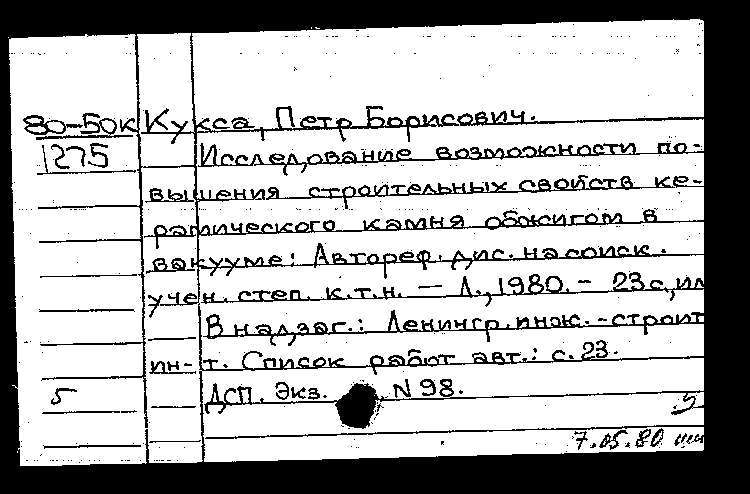 80-50к Кукса, Петр Борисович.
1275 Исследование возможности по-
вышения строительных свойств ке-
рамического камня обжигом в
вакууме: Автореф. дис. на соиск.
учен. степ. к.т.н. — Л., 1980. - 23 с, ил
В надзаг.: Ленингр. инж.-строит
ин-т. Список работ авт.: с. 23.
5 ДСП. Экз. N 98.
7.05.80